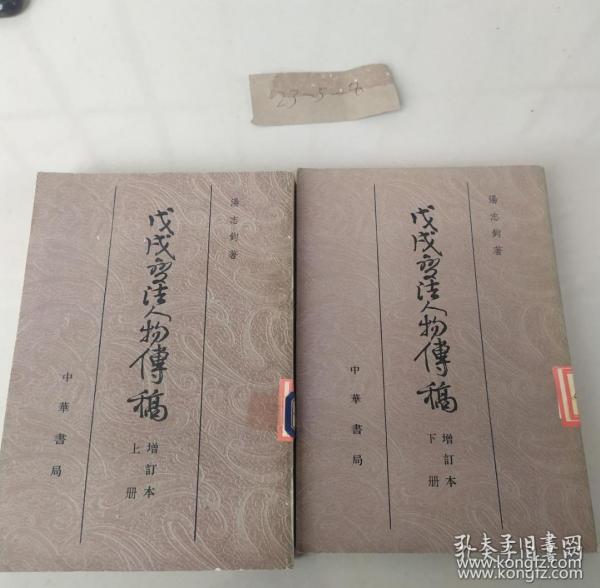 23-5-4
湯志鈞著
戊戌变法人物傳稿
增訂本
上册
中華書局
湯志鈞著
戊戌变法人物傳稿
增訂本
下册
中華書局
孔夫子旧書网
www.kongfz.com